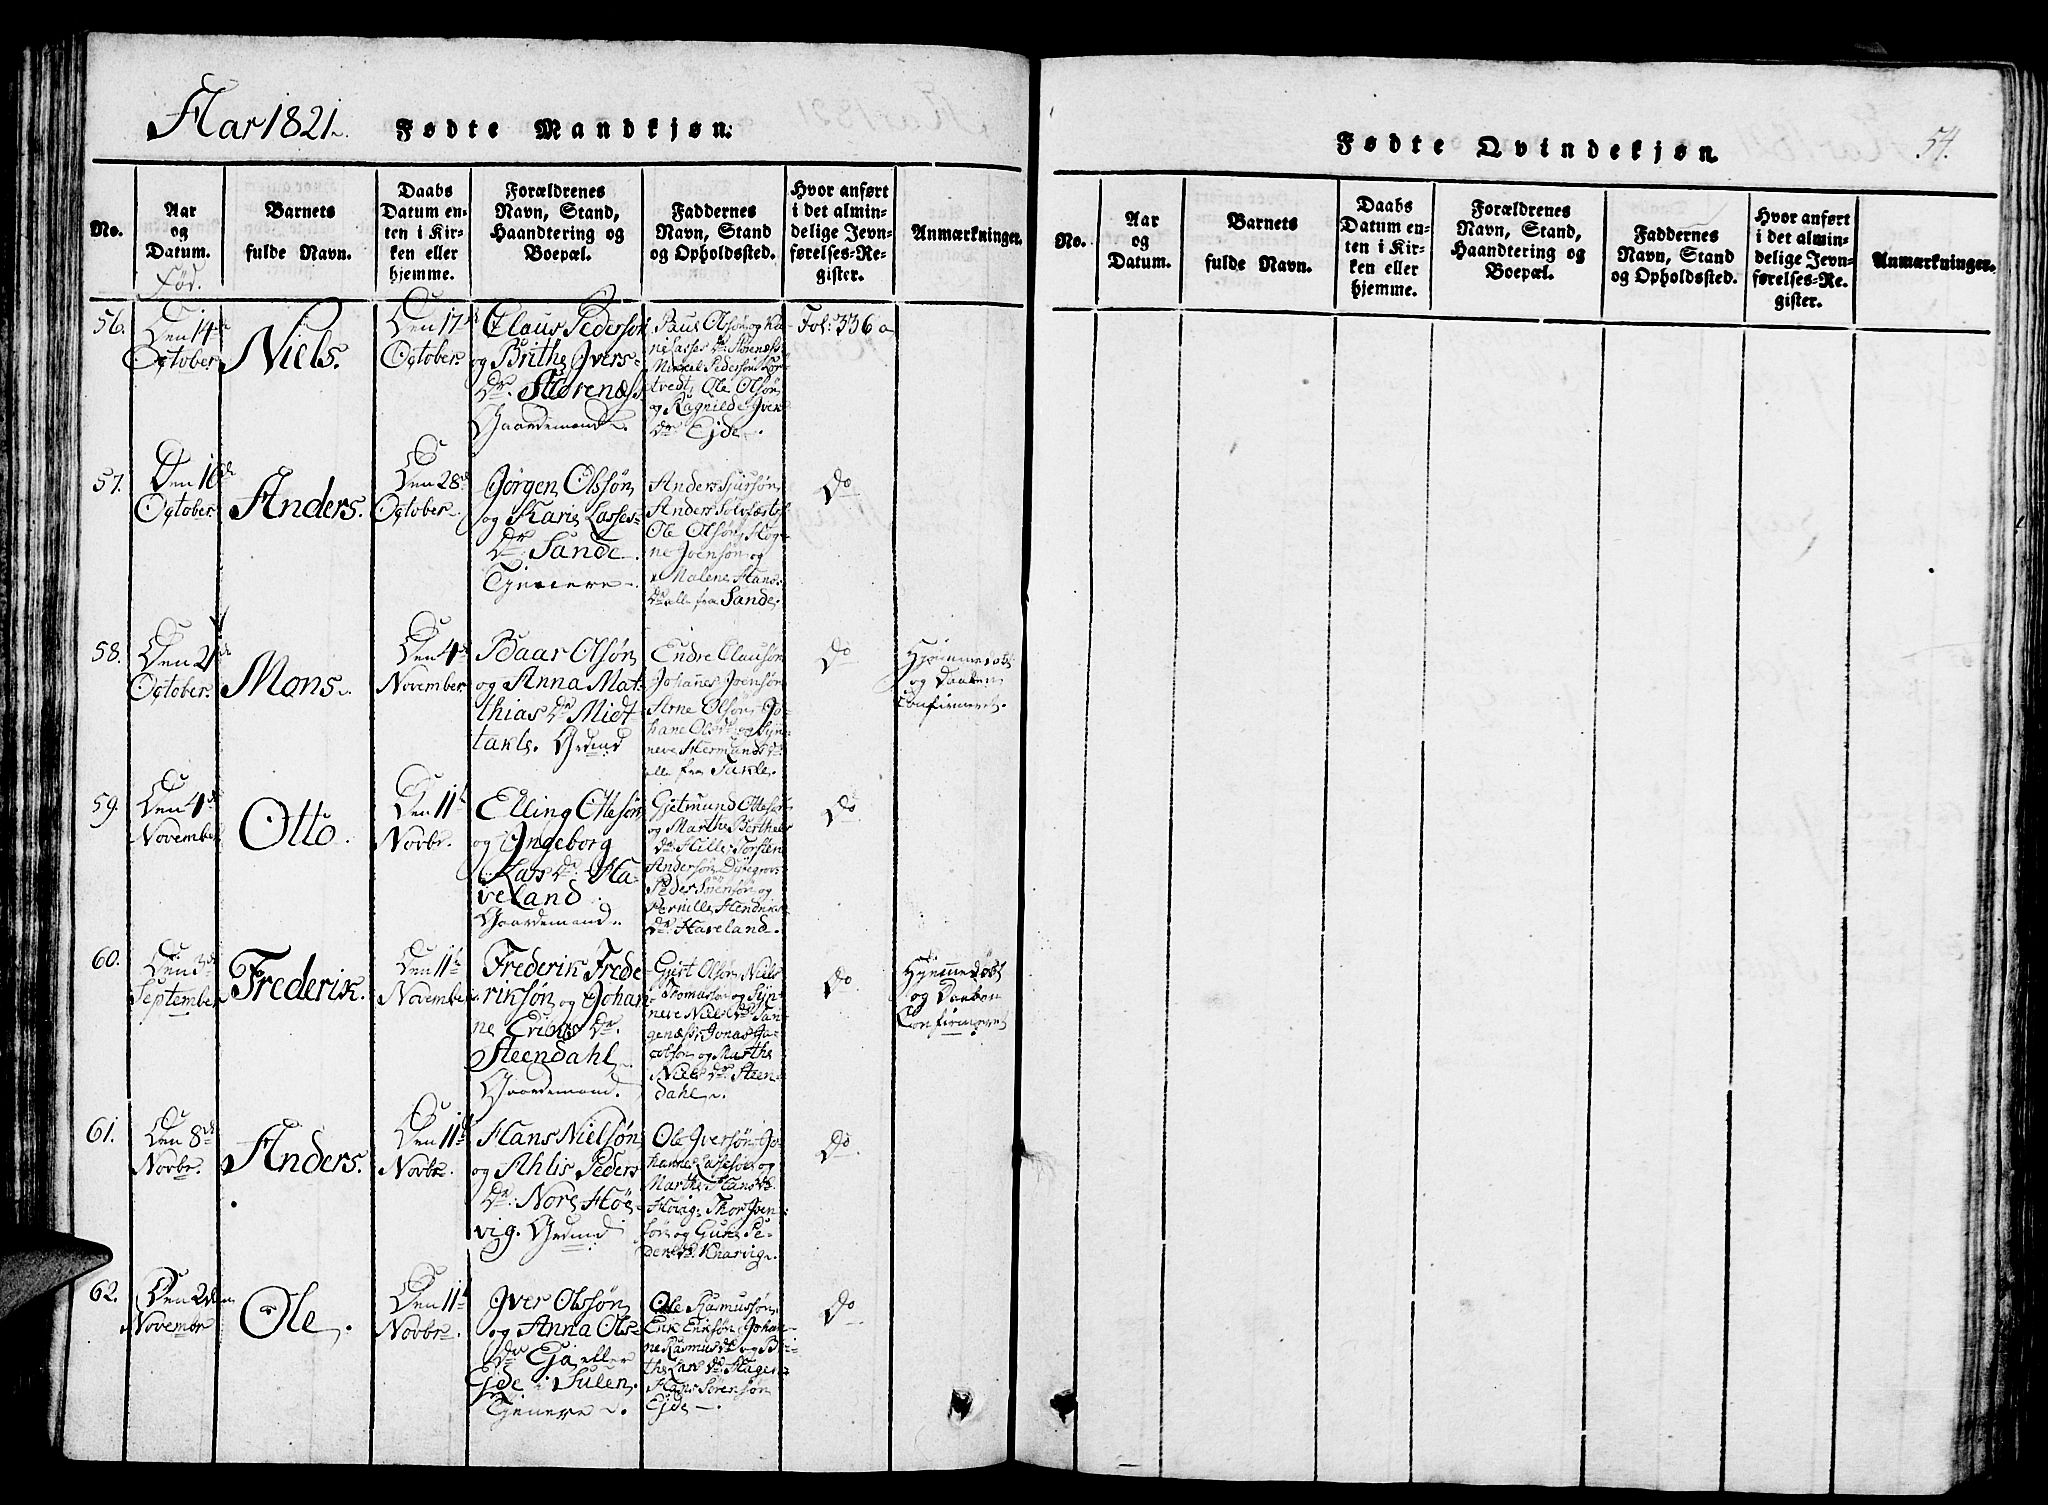 Aar 1821. Fødte Mandkjøn.
No.
Aar
og
Datum.
Fød.
Barnets
fulde Navn.
Daabs
Datum en-
ten i Kir-
ken eller
hjemme.
Forældrenes
Navn, Stand,
Haandtering og
Boepæl.
Faddernes
Navn, Stand
og Opholdssted.
Hvor anført
i det almin-
delige Jevn-
førelses-Re-
gister.
Anmærkninger.
56.
Den 14de
October
Niels.
Den 17de
October.
Claus Pedersøn
og Brithe Ivers-
Dr. Storenæs
Gaardemand.
Paul Olsøn og Ka-
ri Lasses Dr Storenæs
Mikkel Pedersøn
tvedt, Ole Olsøn
og Ragnilde Iver
Dr Ejde.
Fol: 336 a
57.
Den 16de
October
Anders.
Den 28de
October.
Jørgen Olssøn
og Kari Lasses-
Dr. Sande.
Tjenere.
Anders Siursøn
Anders
Ole Olsøn, Hog-
ne Joensøn og
Malene Hans
Dr alle fra Sande.
Do
58.
Den 21de
October.
Mons.
Den 4de
November.
Baar Olsøn
og Anna Mat-
thias Dr Midt
takle. Grdmd
Endre Clausøn
Johanes Joensøn
Arne Olsøn, Jo-
hane Ols Dr og Syn-
neve Hermunds Dr
alle fra Takle.
Do
Hjemmedøbt
og Daaben
Confirmeret.
59.
Den 4de
November
Otto.
Den 11te
Novbr.
Elling Ottesøn
og Ingeborg
Lars Dr. Ha-
veland
Gaardemand.
Gietmund Ottesøn
og Marthe Berthels
Dr Hille, Torsten
Andersøn
Peder Sørensøn og
Pernille Hendriks
Dr. Haveland.
Do
60.
Den 3de
September
Frederik.
Den 11te
November
Frederik Frede-
riksøn og Johan
ne Eriks Dr.
Steendahl.
Gaardemand.
Olsøn Niels
Thomasøn og Syn-
neve Niels Dr
Jonas Ja-
cobsøn og Marthe
Niels Dr. Steen
dahl.
Do
Hjemmedøbt
og Daaben
Confirmeret
61.
Den 8de
Novbr.
Anders.
Den 11te
Novbr.
Hans Nielsøn
og Ahlis Peders
Dr. Nore Høe-
vig. Grdmd
Ole Iversøn, Jo-
hannes Lassesøn og
Marthe Hans Dr.
Høvig, Thor Iver-
søn og Guri Pe-
ders Dr. Knarvig.
Do.
62.
Den 2den
Novembr
Ole.
Den 11te
Novbr.
Iver Olssøn
og Anna Ols-
Dr Ejde eller
Ejde i Sulen.
Tjenere.
Ole Rasmussøn
Erik Eriksøn, Johan-
ne Rasmus Dr og Bri-
the Lars Dr. Hagen
Hans Sørensøn
Ejde.
Do
Fødte Qvindekjøn. 54.
No.
Aar
og
Datum.
Barnets
fulde Navn.
Daabs
Datum en-
ten i Kir-
ken eller
hjemme.
Forældrenes
Navn, Stand,
Haandtering og
Boepæl.
Faddernes
Navn, Stand
og Opholdssted.
Hvor anført
i det almin-
delige Jevn-
førelses-Re-
gister.
Anmærkninger.